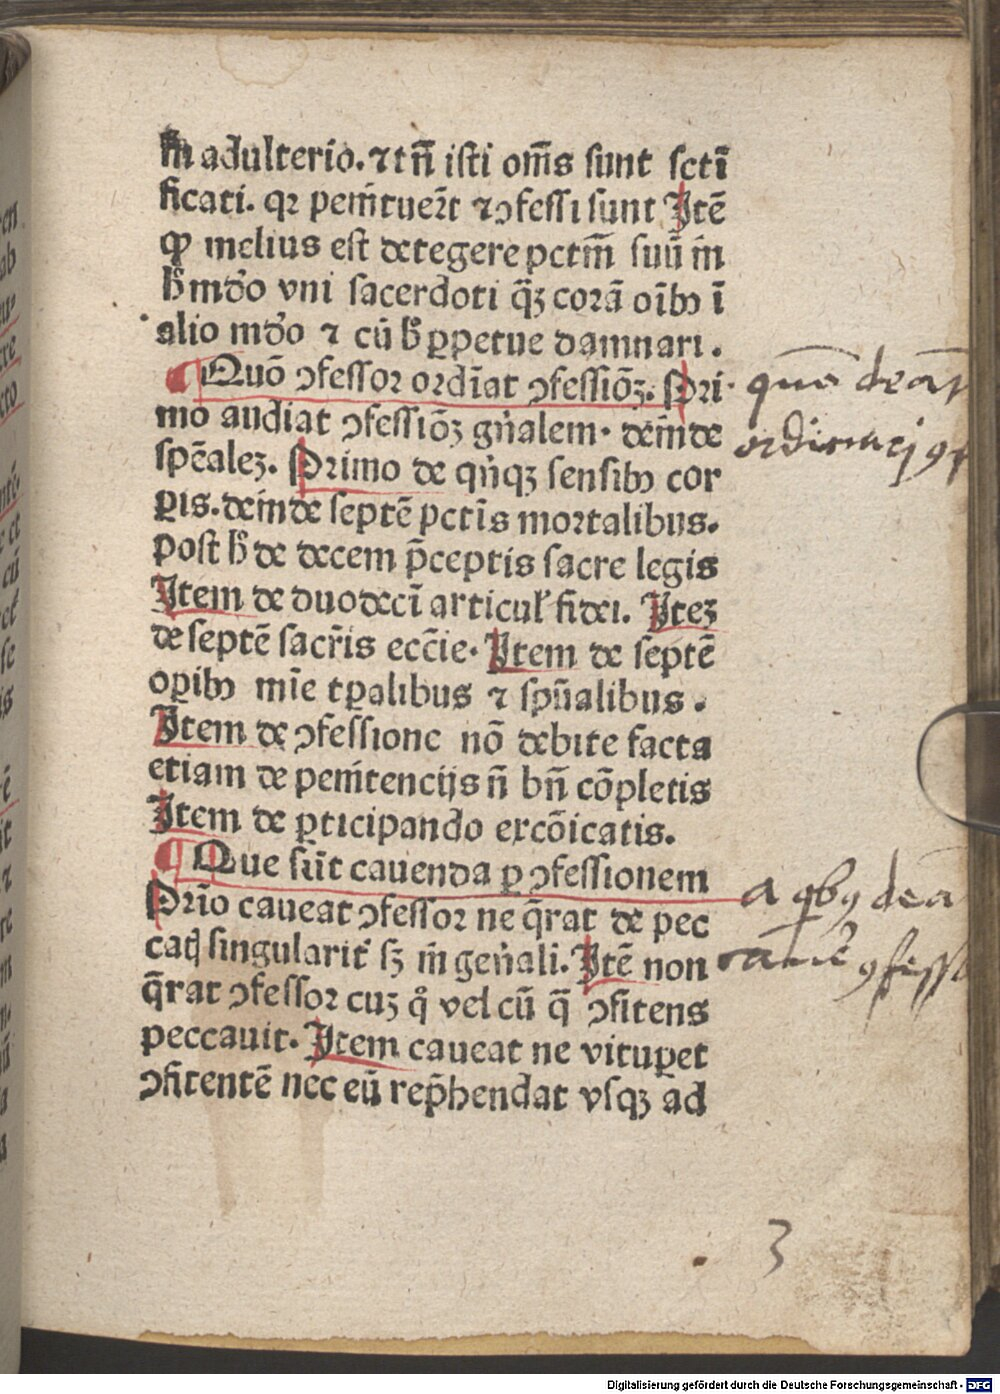 in adulterio. ⁊ tn̄ isti om̄s sunt scti
ficati. qꝛ penītuer̄t ⁊ ꝯfessi sunt Itē
ꝙ melius est detegere pctm̄ suū in
h̄ mōo vni sacerdoti q̄ꝫ corā oībꝰ ī
alio mōo ⁊ cū h̄ ꝑpetue damnari.
¶ Quō ꝯfessor ordīat ꝯfessiōꝫ. Pri-
mo audiat ꝯfessiōꝫ gn̄alem. deinde
spēaleꝫ. Primo de qn̄qꝫ sensibꝰ cor
ꝑis. deinde septē pctīs mortalibus.
Post h̄ de decem p̄ceptis sacre legis
Item de duodecī articuł fidei. Iteꝫ
de septē sacr̄is ecc̄ie. Item de septē
oꝑibꝰ mīe tꝑalibus ⁊ spūalibus.
Item de ꝯfessione nō debite facta
etiam de penītencijs n̄ bn̄ cōpletis
Item de ꝑticipando excōicatis.
¶ Que sūt cauenda ꝑ ꝯfessionem
Prīo caueat ꝯfessor ne q̄rat de pec
catꝭ singularit̄ sꝫ in gen̄ali. Itē non
q̄rat ꝯfessor cuꝫ qͦ vel cū q̄ ꝯfitens
peccauit. Item caueat ne vituꝑet
ꝯfitentē nec eū rep̄hendat vsqꝫ ad
quō deat
ordinari ꝯf
a qbꝯ dea
cauē ꝯfesso
3
Digitalisierung gefördert durch die Deutsche Forschungsgemeinschaft - DFG